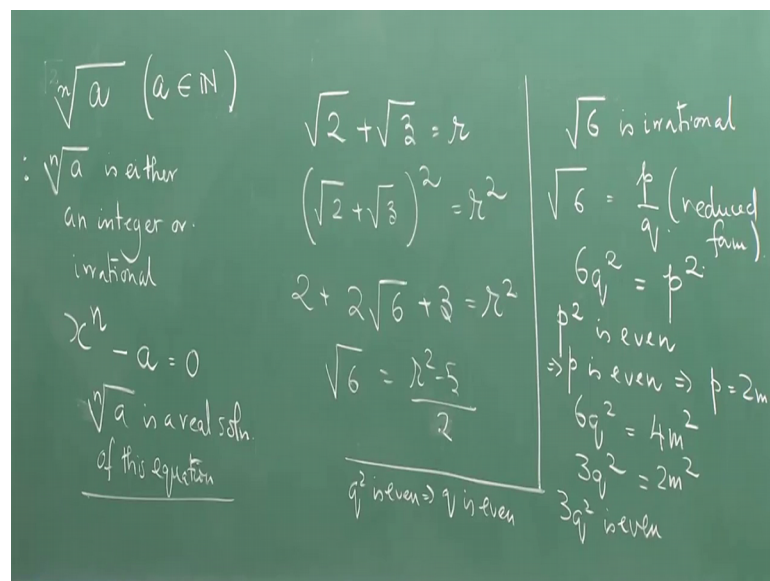 ⁿ√a (a ∈ ℕ)
: ⁿ√a is either
an integer or
irrational
xⁿ - a = 0
ⁿ√a is a real soln.
of this equation
√2 + √3 = r
(√2 + √3)² = r²
2 + 2√6 + 3 = r²
√6 = (r² - 5)/2
q² is even ⇒ q is even
√6 is irrational
√6 = p/q (reduced
form)
6q² = p²
p² is even
⇒ p is even ⇒ p = 2m
6q² = 4m²
3q² = 2m²
3q² is even